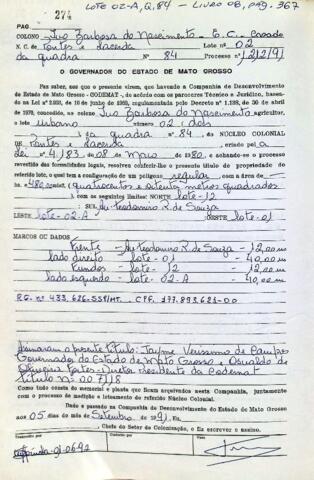 LOTE 02-A, Q. 84 - LIVRO 08, pág. 367
274
PAG
COLONO Ivo Barbosa do Nascimento - E. C. Casado
N. C. de Pontes e Lacerda Lote nº 02
da quadra Nº 84 PROC.
O GOVERNADOR DO ESTADO DE MATO GROSSO
Faz saber, aos que o presente virem, que havendo a Companhia de Desenvolvimento
do Estado de Mato Grosso - CODEMAT -, de acôrdo com os pareceres Técnico e Jurídico, baseado
na Lei nº 2.263, de 16 de junho de regulamentada pelo Decreto nº 1.138, de 30 de abril
de 1970, concedido ao colono Ivo Barbosa do Nascimento agricultor,
o lote urbano nº 02 (dois
da quadra nº 84, do NÚCLEO COLONIAL
de Pontes e Lacerda criado pela
Lei 4.183, de 08 de Maio de 1980, e achando-se o processo
revestido das formalidades legais, resolveu conferir-lhe o presente título de propriedade do
referido lote, o qual tem a configuração de um polígono regular com a área de
480,00 m² (quatrocentos e oitenta metros quadrados
) com os seguintes limites: NORTE lote-12
SUL Av. Teodomiro R. de Souza
LESTE lote-02-A OESTE lote-01
MARCOS OU DADOS
Frente - Av. Teodomiro R. de Souza - 12,00 m
lado direito - lote-01 - 40,00 m
Fundos - lote-12 - 12,00 m
lado esquerdo - lote-02-A - 40,00 m
RG. nº 433.626-SSP/MT. CPF. 177.893.621-00
Assinaram o presente título: Jayme Verissimo de Campos
Governador do Estado de Mato Grosso e Oswaldo de
Oliveira Fortes - Diretor Presidente da Codemat
título Nº 007118
Como tudo consta do memorial e planta que ficam arquivados nesta Companhia, juntamente
com o processo de medição e loteamento do referido Núcleo Colonial.
Dado e passado na Companhia de Desenvolvimento do Estado de Mato Grosso
aos 05 dias do mês de Setembro de 1991. Eu,
Chefe do Setor de Colonização, o fiz escrever.
Transcrito por
Conferido por
Visto